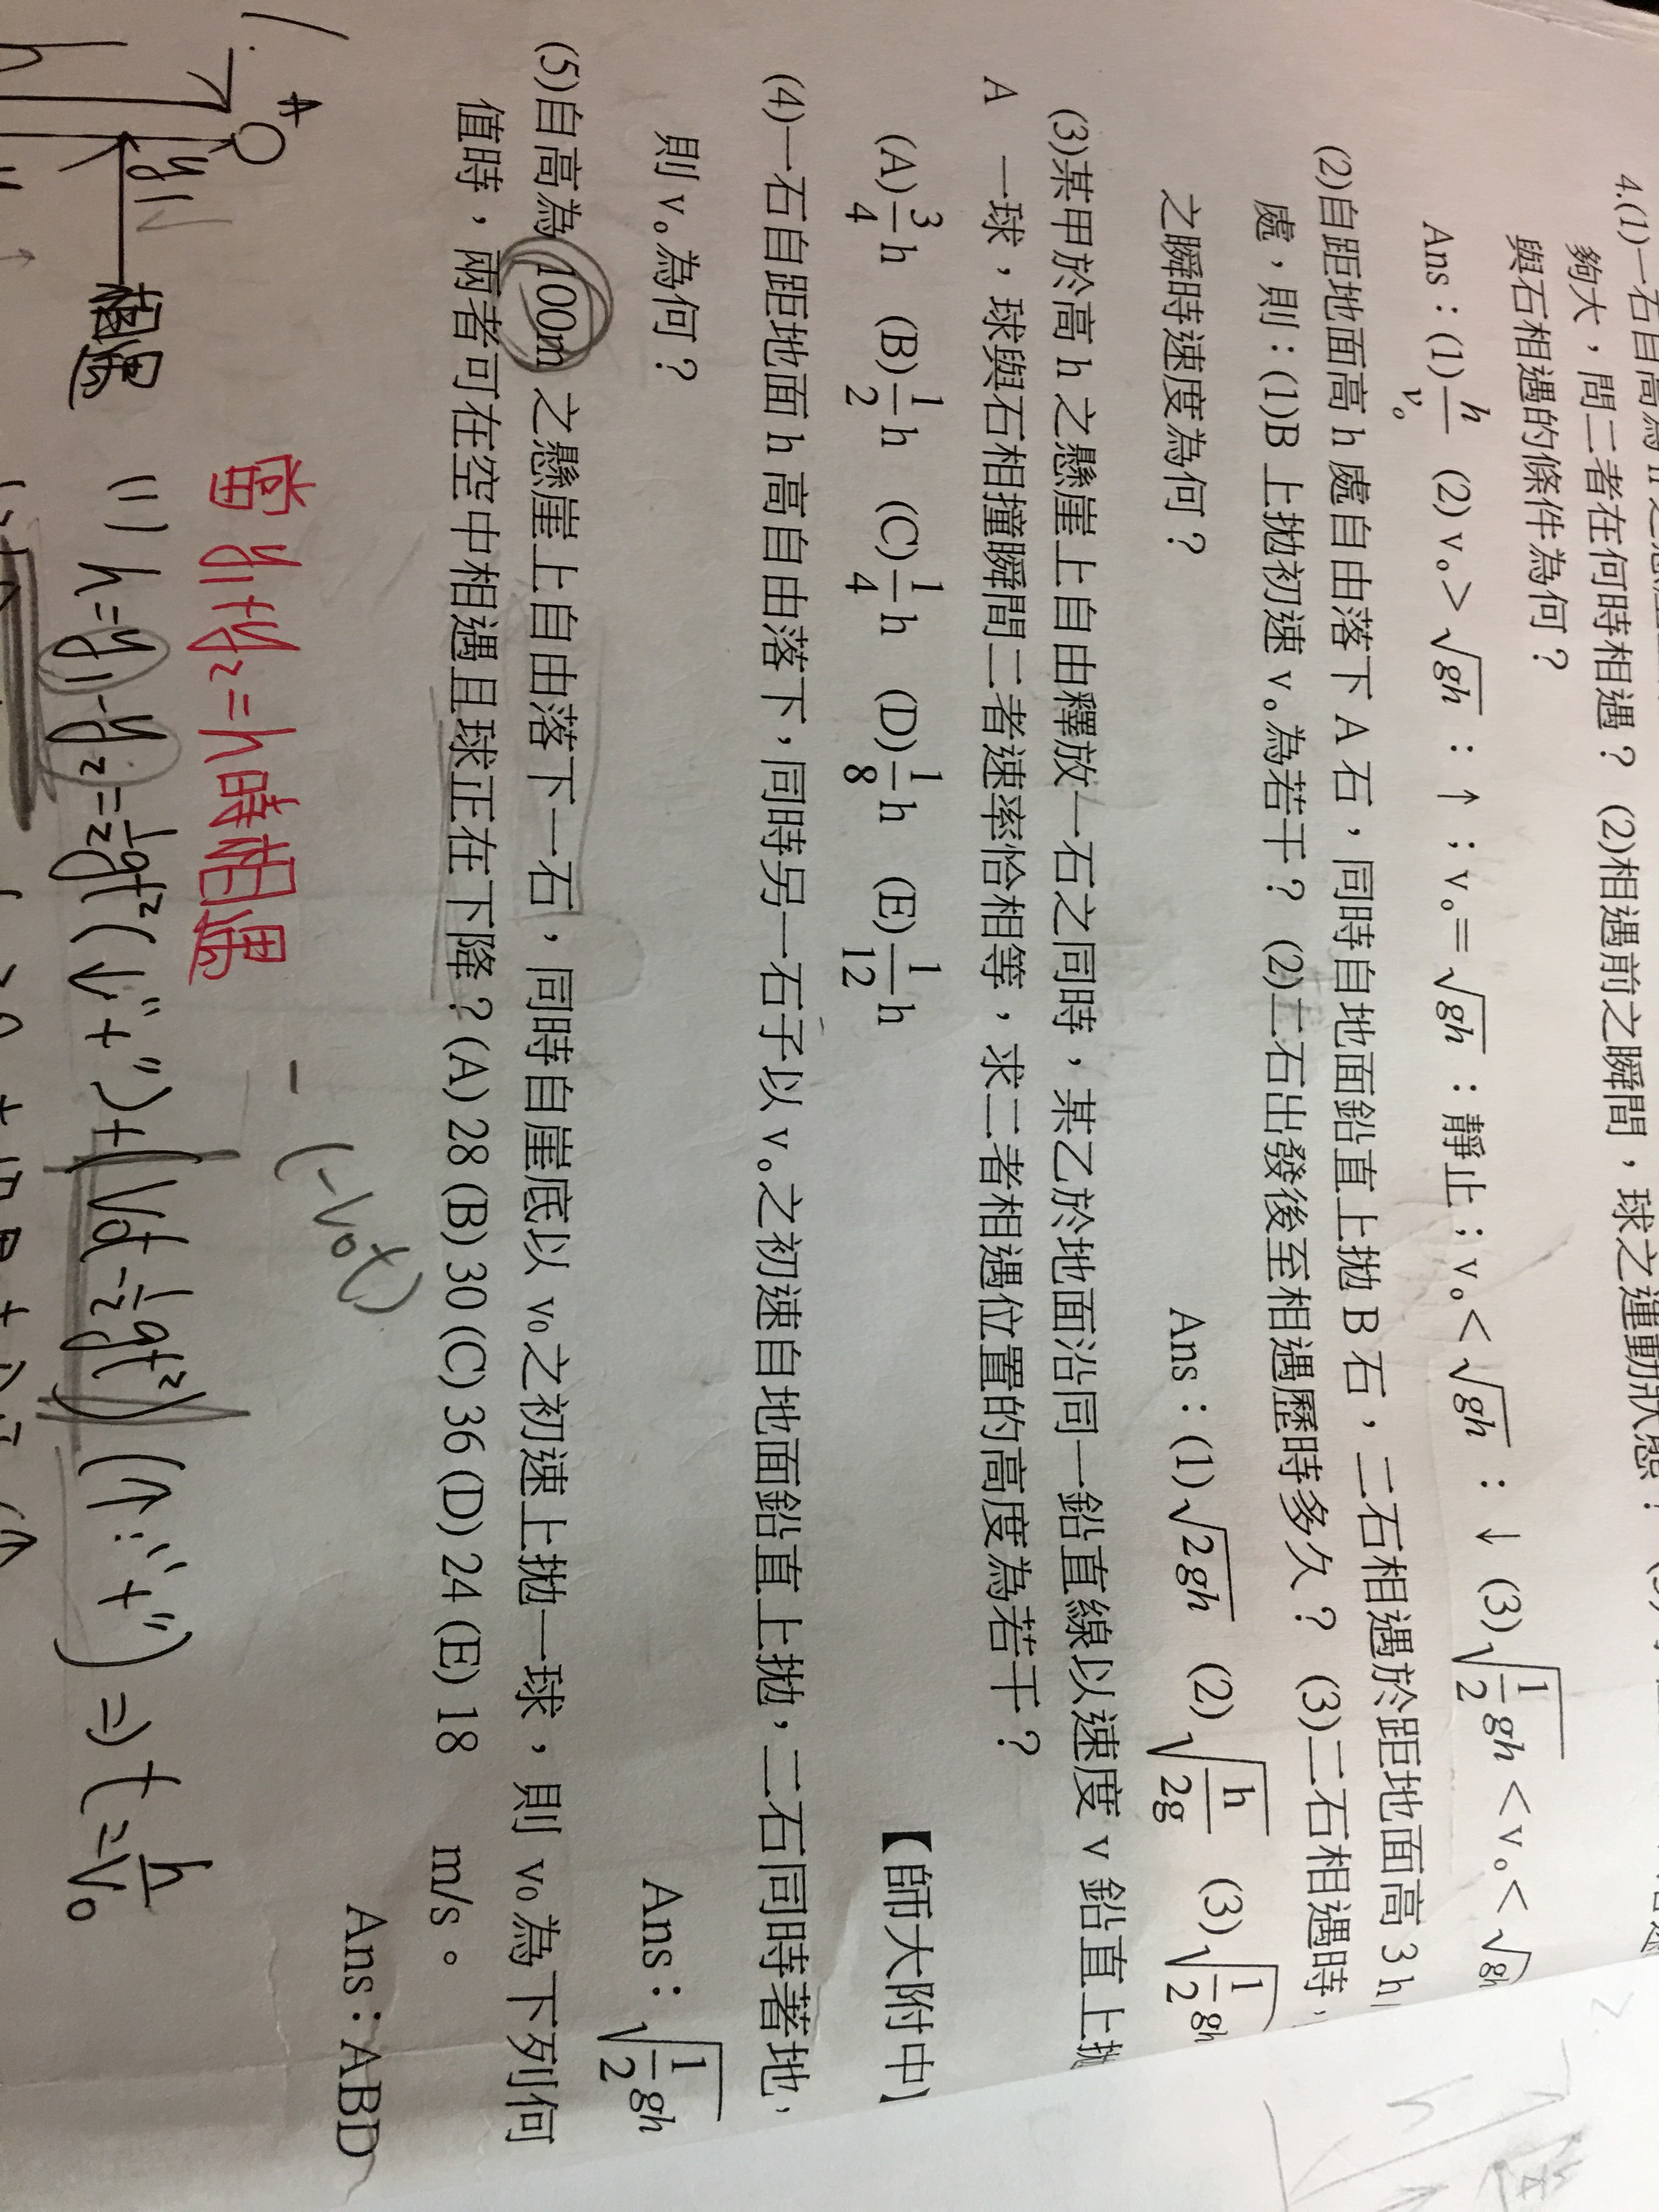 4.(1)一石自高為 h 之懸崖
夠大，問二者在何時相遇？ (2)相遇前之瞬間，球之運動狀態？
與石相遇的條件為何？
Ans：(1) h/v₀ (2) v₀> √gh ：↑；v₀= √gh ：靜止；v₀< √gh ：↓ (3) √(1/2 gh) < v₀< √gh
(2)自距地面高 h 處自由落下 A 石，同時自地面鉛直上拋 B 石，二石相遇於距地面高 3 h
處，則：(1)B 上拋初速 v₀為若干？ (2)二石出發後至相遇歷時多久？ (3)二石相遇時，
之瞬時速度為何？
Ans：(1) √2gh (2) √(h/2g) (3) √(1/2 gh)
(3)某甲於高 h 之懸崖上自由釋放一石之同時，某乙於地面沿同一鉛直線以速度 v 鉛直上拋
A 一球，球與石相撞瞬間二者速率恰相等，求二者相遇位置的高度為若干？
(A) 3/4 h (B) 1/2 h (C) 1/4 h (D) 1/8 h (E) 1/12 h 【師大附中】
(4)一石自距地面 h 高自由落下，同時另一石子以 v₀之初速自地面鉛直上拋，二石同時著地，
則 v₀為何？
Ans：√(1/2 gh)
(5)自高為 100m 之懸崖上自由落下一石，同時自崖底以 v₀之初速上拋一球，則 v₀為下列何
值時，兩者可在空中相遇且球正在下降？(A) 28 (B) 30 (C) 36 (D) 24 (E) 18 m/s。
Ans：ABD
-(-V₀t)
1.
A
y₁
相遇
當 y₁+y₂=h時相遇
(1) h=y₁-y₂=½gt²(↓"+")+(V₀t-½gt²)(↑:"+") ⇒ t=h/V₀
h